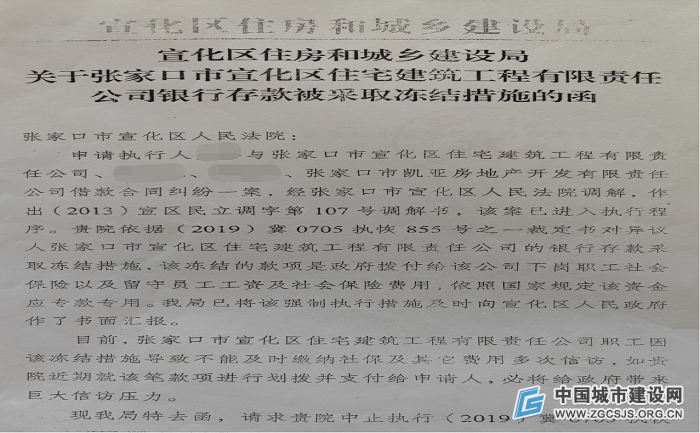 宣化区住房和城乡建设局
宣化区住房和城乡建设局
关于张家口市宣化区住宅建筑工程有限责任
公司银行存款被采取冻结措施的函
张家口市宣化区人民法院：
申请执行人 与张家口市宣化区住宅建筑工程有限责
任公司、 、 、张家口市凯亚房地产开发有限责任
公司借款合同纠纷一案，经张家口市宣化区人民法院调解，作
出（2013）宣区民立调字第107号调解书，该案已进入执行程
序。贵院依据（2019）冀0705执恢855号之一裁定书对异议
人张家口市宣化区住宅建筑工程有限责任公司的银行存款采
取冻结措施，该冻结的款项是政府拨付给该公司下岗职工社会
保险以及留守员工工资及社会保险费用，依照国家规定该资金
应专款专用。我局已将该强制执行措施及时向宣化区人民政府
作了书面汇报。
目前，张家口市宣化区住宅建筑工程有限责任公司职工因
该冻结措施导致不能及时缴纳社保及其它费用多次信访，如贵
院近期就该笔款项进行划拨并支付给申请人，必将给政府带来
巨大信访压力。
现我局特去函，请求贵院中止执行（2019）冀0705执恢
中国城市建设网
WWW.ZGCSJS.ORG.CN